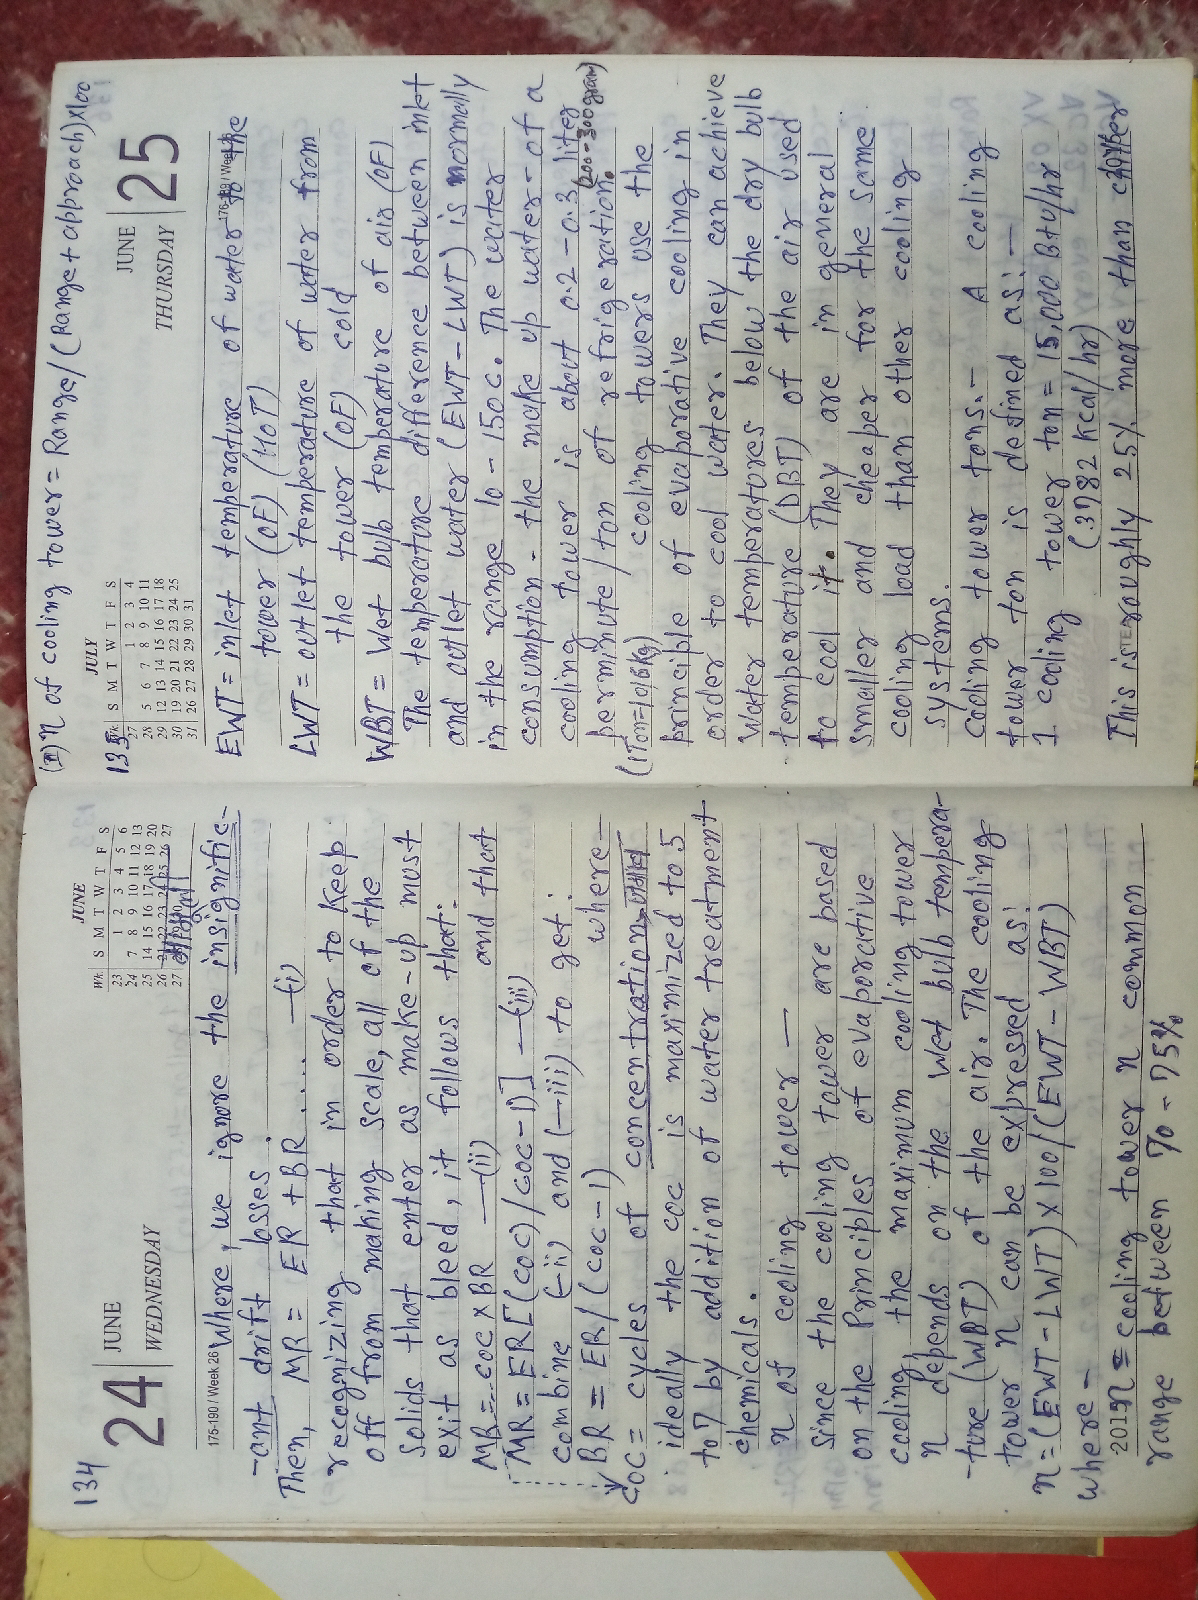 134
24 JUNE
WEDNESDAY
JUNE
Wk S M T W T F S
23 1 2 3 4 5 6
24 7 8 9 10 11 12 13
25 14 15 16 17 18 19 20
26 21 22 23 24 25 26 27
27
175-190 / Week 26
Where, we ignore the insignific-
-ant drift losses.
Then, MR = ER + BR .... —(i)
recognizing that in order to keep
off from making scale, all of the
solids that enter as make-up must
exit as bleed, it follows that:
MR = COC x BR —(ii) and that
MR = ER [(COC) / COC-1)] —(iii)
combine (-ii) and (-iii) to get:
BR = ER / (COC-1) where—
COC = cycles of concentration,
ideally the coc is maximized to 5
to 7 by addition of water treatment
chemicals.
n of cooling tower —
Since the cooling tower are based
on the Principles of evaporative
cooling, the maximum cooling tower
n depends on the wet bulb tempera-
-ture (WBT) of the air. The cooling
tower n can be expressed as:
n = (EWT - LWT) x 100 / (EWT - WBT)
where —
2015 n = cooling tower n common
range between 70 - 75%
(n) n of cooling tower = Range / (Range + approach) x 100
135
JULY
Wk S M T W T F S
27 1 2 3 4
28 5 6 7 8 9 10 11
29 12 13 14 15 16 17 18
30 19 20 21 22 23 24 25
31 26 27 28 29 30 31
JUNE 25
THURSDAY
EWT = inlet temperature of water to the
tower (OF) (HOT)
LWT = outlet temperature of water from
the tower (OF) cold
WBT = wet bulb temperature of air (OF)
The temperature difference between inlet
and outlet water (EWT - LWT) is normally
in the range 10 - 150C. The water
consumption - the make up water - of a
cooling tower is about 0.2 - 0.3 liter
(200-300gram)
perminute / ton of refrigeration.
(1Ton=1016Kg) cooling towers use the
principle of evaporative cooling in
order to cool water. They can achieve
water temperatures below the dry bulb
temperature (DBT) of the air used
to cool it. They are in general
smaller and cheaper for the same
cooling load than other cooling
systems.
Cooling tower tons. — A cooling
tower ton is defined as: —
1 cooling tower ton = 15,000 Btu/hr
(3782 Kcal/hr)
This is roughly 25% more than chiller